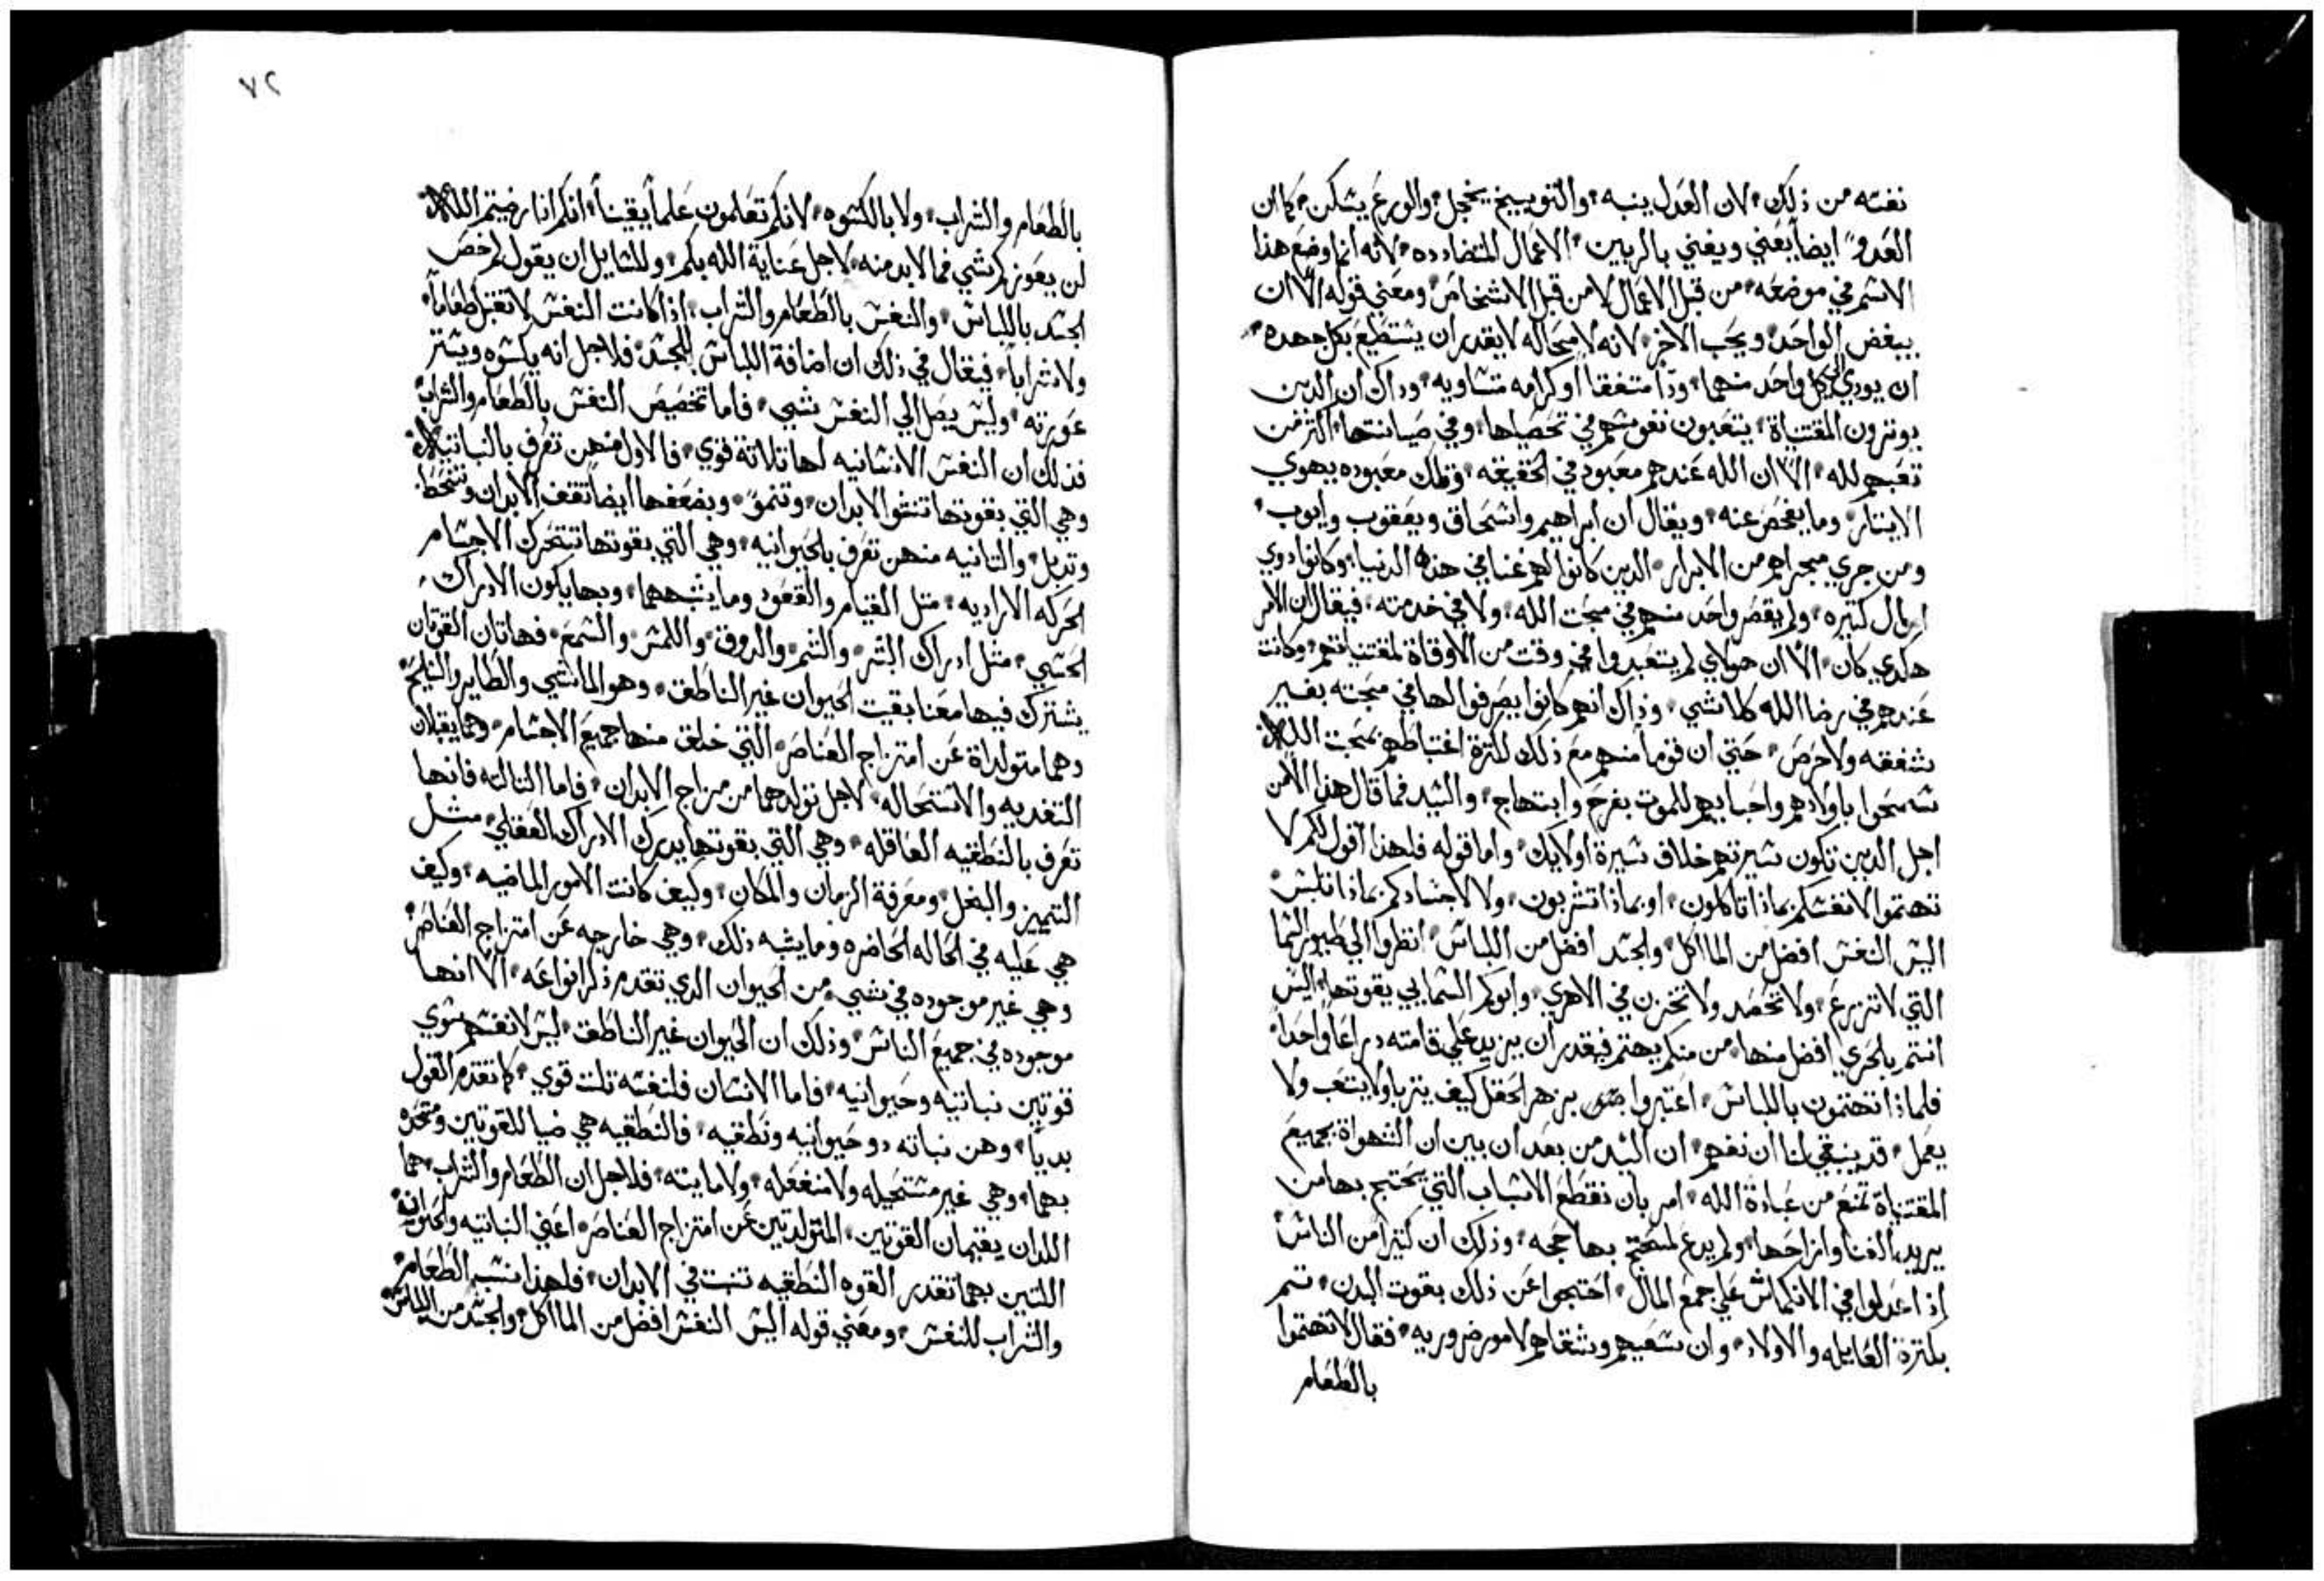 نفسه من ذلك، لان العدل ينبه، والتوبيخ يخجل، والورع يسكن، كما ان
العدو ايضاً يعني ويفني بالربين، الاعمال المتضادده، لانه انما وضع هذا
الاسم في موضعه، من قبل الاعمال لا من قبل الاشخاص، ومعني قوله الا ان
يبغض الواحد، ويحب الاخر، لانه لا محاله لا يقدر ان يستطيع بكل جهده،
ان يودي الي كل واحد منهما، وداً متفقا او كرامه متساويه، وداك ان الدين
يوترون المقتناة، يتعبون نفوسهم في تحصيلها، وفي صيانتها، اكتر من
تعبهم لله، الا ان الله عندهم معبود في الحقيقه، وتلك معبوده بهوي
الايتار، وما يفحص عنه، ويقال ان ابراهيم واسحاق ويعقوب وايوب،
ومن جري مجراهم من الابرار، الدين كانوا لهم غنا في هذه الدنيا، وكانوا دوي
اموال كتيره، ولم يقصر واحد منهم في محبت الله، ولا في خدمته، فيقال ان الامر
هكدي كان، الا ان هولاي لم يتعبدوا في وقت من الاوقاة لمقتنياتهم، وكانت
عندهم في رضا الله كلا شي، وذاك انهم كانوا يصرفوا لها في محبته بغير
شفقه ولا حرص، حتي ان قوماً منهم مع ذلك لكترة اغتباطهم بمحبت الله
سمحوا باولادهم واحبايهم للموت بفرح وابتهاج، والسيد فما قال هذا الا من
اجل الدين تكون سيرتهم خلاف سيرة اولايك، واما قوله فلهذا اقول لكم لا
تهتموا لانفسكم بماذا تاكلون، او بماذا تشربون، ولا لاجسادكم بماذا تلبس،
اليس النفس افضل من الماكل، والجسد افضل من اللباس، انظروا الي طيور السما
التي لا تزرع، ولا تحصد ولا تخزن في الاهري، وابوكم السمايي يقوتها، اليس
انتم بالحري افضل منها، من منكم يهتم فيقدر ان يزيد علي قامته دراعاً واحداً،
فلماذا تهتمون باللباس، اعتبروا بزهر الحقل كيف يتربا ولا يتعب ولا
يعمل، قد ينبغي لنا ان نفهم، ان السيد من بعد ان بين ان الشهواة بجميع
المقتناة تمنع من عبادة الله، امر بان نقطع الاسباب التي يحتج بها من
يريد الغنا وازاحها، ولم يدع لمحتج بها حجه، وذلك ان كتيراً من الناس
إذا عدلوا في الانكماش علي جمع المال، احتجوا عن ذلك بقوت البدن، تم
بكترة العايله والاولاد، وان سعيهم وشقاهم لامور ضروريه، فقال لا تهتموا
بالطعام
٧٢
بالطعام والشراب، ولا بالكسوه، لانكم تعلمون علماً يقيناً، انكم اذا رضيتم الله
لن يعوزكم شي مما لا بد منه، لاجل عناية الله بكم، وللسايل ان يقول لم خص
الجسد باللباس، والنفس بالطعام والشراب، اذا كانت النفس لا تقبل طعاماً،
ولا شراباً، فيقال في ذلك ان اضافة اللباس للجسد، فلاجل انه يكسوه ويستر
عورته، وليس يصل الي النفس شي، فاما تخصيص النفس بالطعام والشراب
فذلك ان النفس الانسانيه لها تلاتة قوي، فالاول منهن تعرف بالنباتيه
وهي التي بقوتها تنشو الابدان، وتنمو، وبضعفها ايضاً تقف الابدان وتنحط
وتدبل، والتانيه منهن تعرف بالحيوانيه، وهي التي بقوتها تتحرك الاجسام
الحركه الاراديه، متل القيام والقعود وما يشبههما، وبها يكون الادراك،
الحسي، متل ادراك البصر، والشم، والدوق، واللمس، والسمع، فهاتان القوتان
يشترك فيها معنا بقيت الحيوان غير الناطق، وهو الماشي والطاير والسابح،
وهما متولداة عن امتزاج العناصر، التي خلق منها جميع الاجسام، وهما يقبلان
التغديه والاستحاله، لاجل تولدهما من مزاج الابدان، فاما التالته فانها
تعرف بالنطقيه العاقله، وهي التي بقوتها يدرك الادراك العقلي، متل
التمييز والبغل، ومعرفة الزمان والمكان، وكيف كانت الامور الماضيه، وكيف
هي عليه في الحاله الحاضره وما يشبه ذلك، وهي خارجه عن امتزاج العناصر،
وهي غير موجوده في شي، من الحيوان الدي تقدم ذكر انواعه، الا انها
موجوده في جميع الناس، وذلك ان الحيوان غير الناطق، ليس لانفسهم سوي
قوتين نباتيه وحيوانيه، فاما الانسان فلنفسه تلت قوي، كما تقدم القول
بدياً، وهن نباته وحيوانيه ونطقيه، فالنطقيه هي ضيا للقوتين ومتحده
بهما، وهي غير مستحيله ولا منفعله، ولا مايته، فلاجل ان الطعام والشراب، هما
اللدان يقيمان القوتين، المتولدتين عن امتزاج العناصر، اعني النباتيه والحيوانيه
اللتين بهما تقدر القوه النطقيه تتبت في الابدان، فلهذا نسب الطعام،
والشراب للنفس، ومعني قوله اليس النفس افضل من الماكل، والجسد من اللباس،